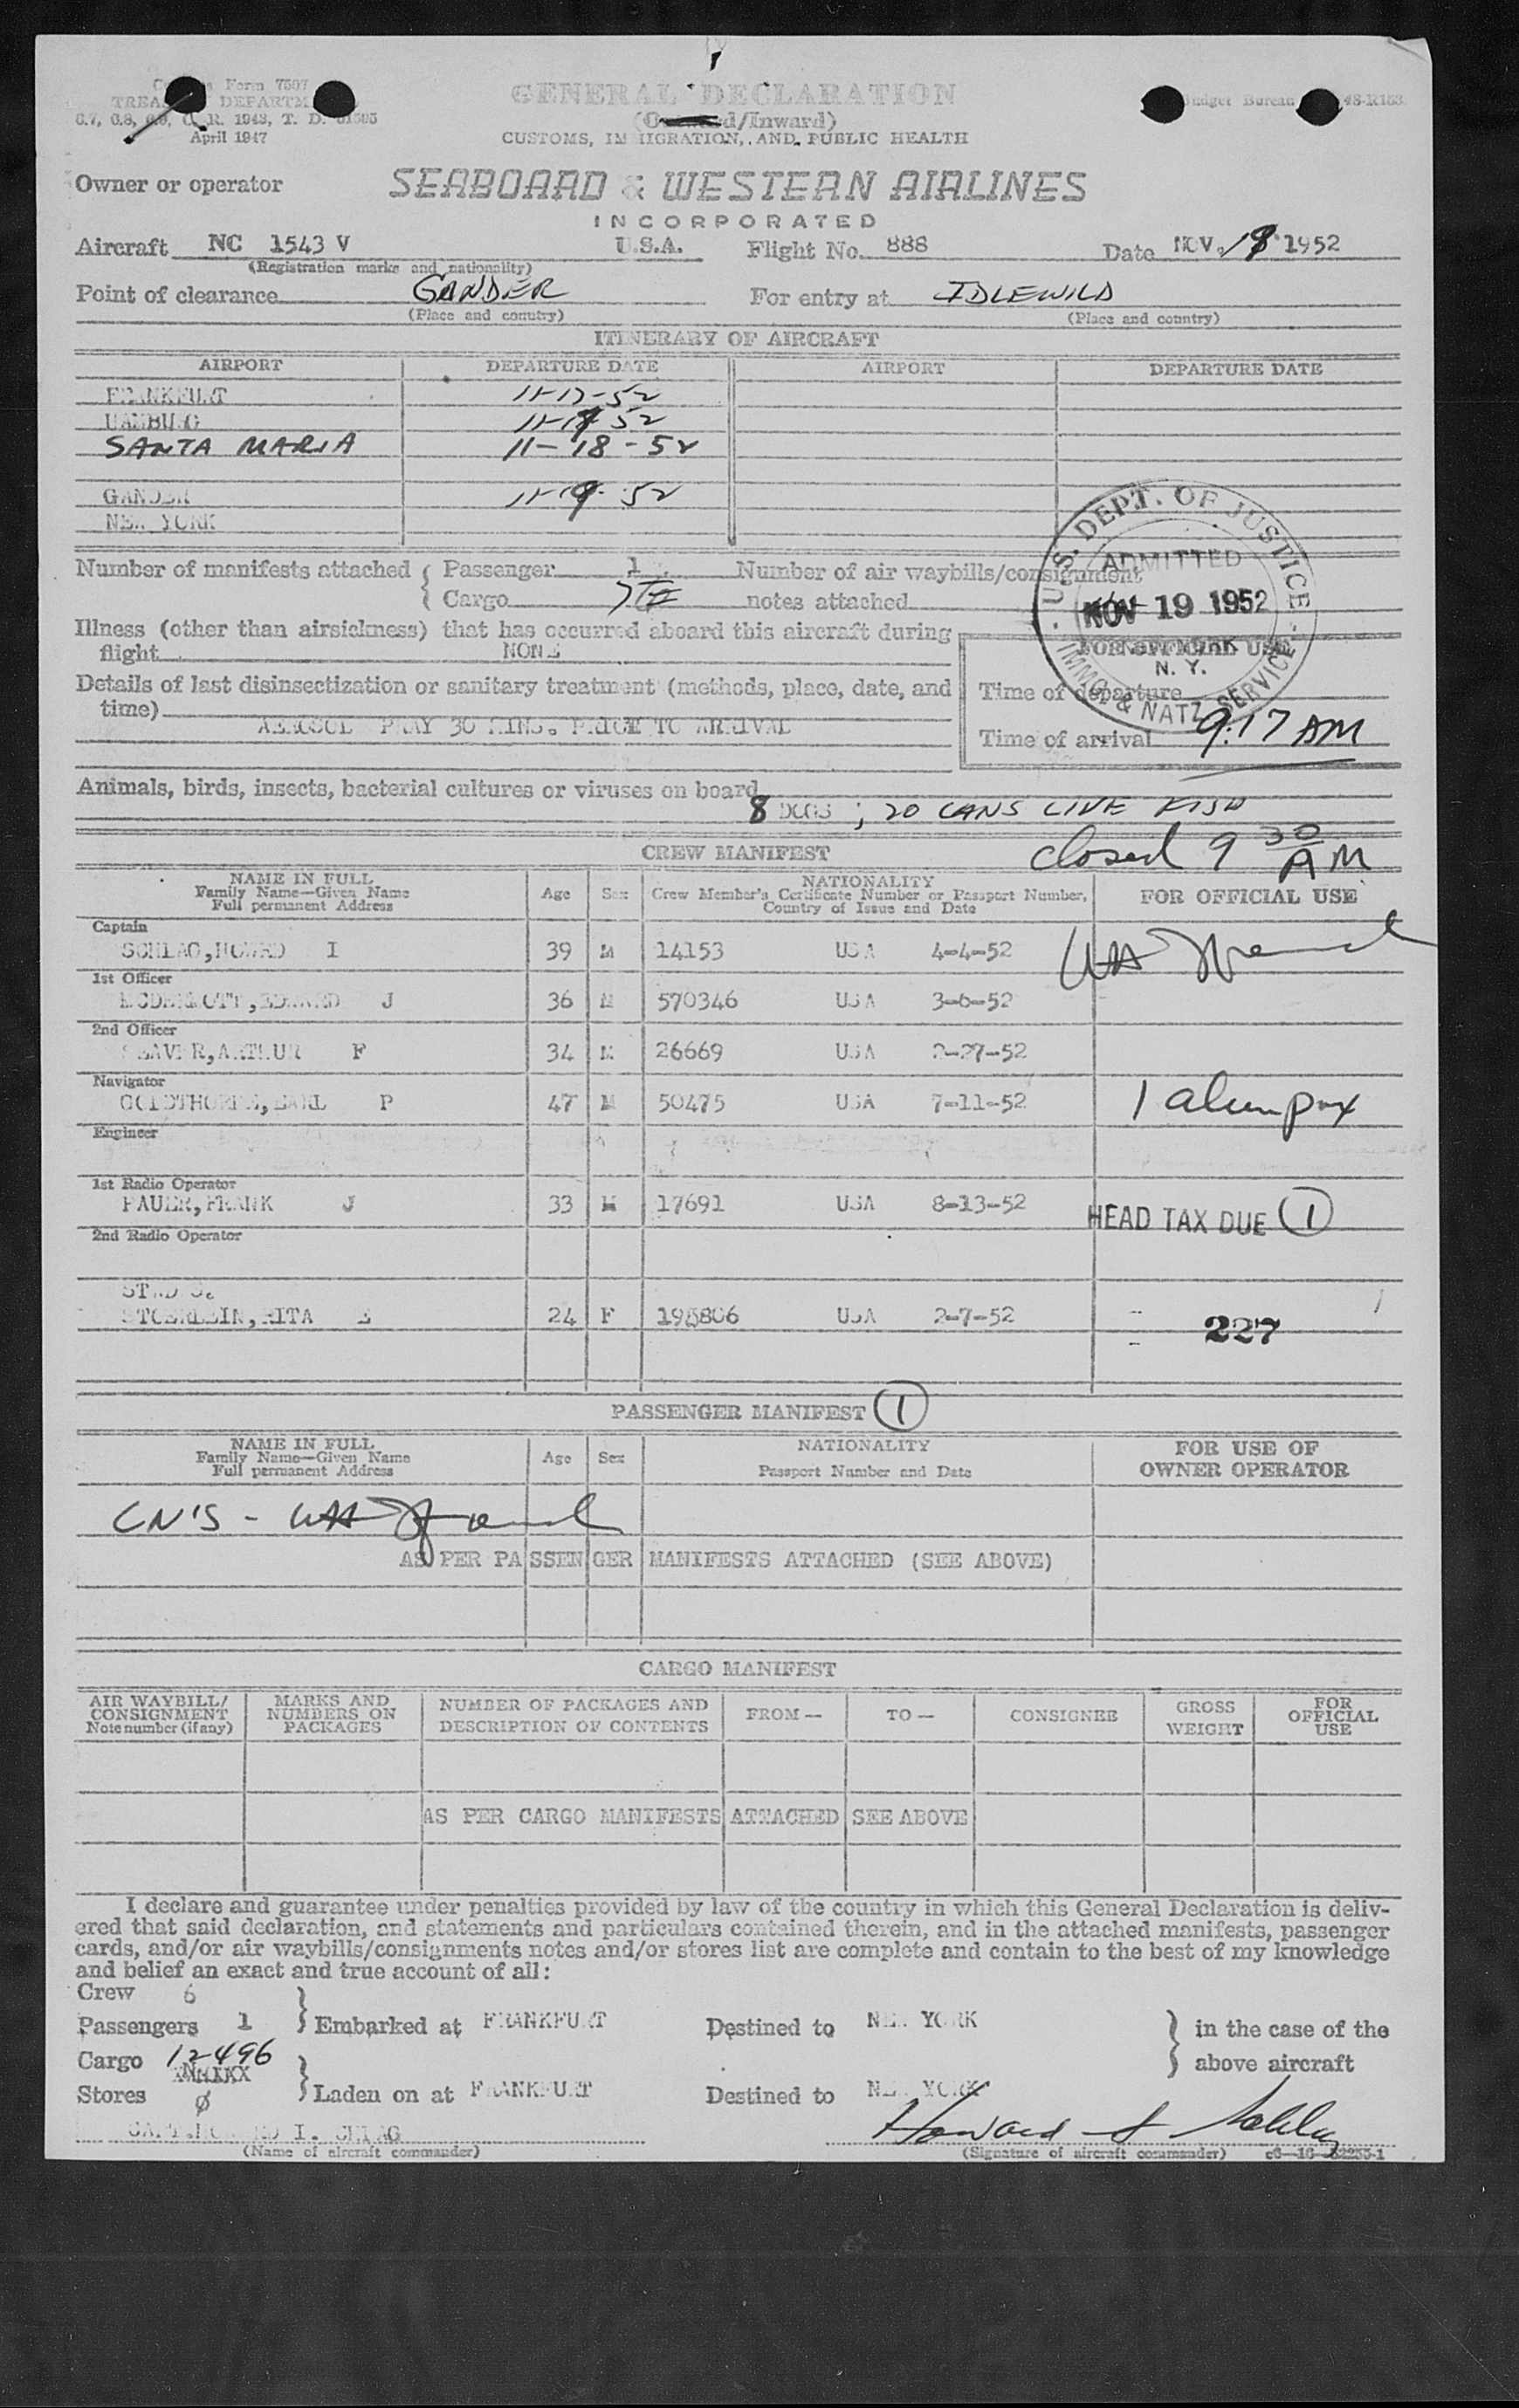 Form 7507
TREA DEPARTM
6.7, 6.8, C. R. 1943, T. D.
April 1947
GENERAL DECLARATION
(O d/Inward)
CUSTOMS, IMMIGRATION, AND PUBLIC HEALTH
Budget Bureau 48-R153
Owner or operator SEABOARD & WESTERN AIRLINES
INCORPORATED
Aircraft NC 1543 V U.S.A. Flight No. 888 Date NOV. 1952
(Registration marks and nationality)
Point of clearance GANDER For entry at IDLEWILD
(Place and country) (Place and country)
ITINERARY OF AIRCRAFT
AIRPORT DEPARTURE DATE AIRPORT DEPARTURE DATE
FRANKFURT 11-17-52
HAMBURG 52
SANTA MARIA 11-18-52
GANDER 52
NEW YORK
U.S. DEPT. OF JUSTICE
ADMITTED
NOV 19 1952
N. Y.
IMMG. & NATZ. SERVICE
Number of manifests attached { Passenger 1 Number of air waybills/consignment
{ Cargo notes attached
Illness (other than airsickness) that has occurred aboard this aircraft during
flight NONE
FOR OFFICIAL USE
Details of last disinsectization or sanitary treatment (methods, place, date, and
time)
AEROSOL PRAY 30 MINS. PRIOR TO ARRIVAL
Time of departure
Time of arrival 9:17 AM
Animals, birds, insects, bacterial cultures or viruses on board
8 DOGS ; 20 CANS LIVE FISH
CREW MANIFEST closed 9 30 AM
NAME IN FULL
Family Name—Given Name
Full permanent Address
Age Sex
NATIONALITY
Crew Member's Certificate Number or Passport Number,
Country of Issue and Date
FOR OFFICIAL USE
Captain
SCHLAG, HOWRD I 39 M 14153 USA 4-4-52
1st Officer
MCDERMOTT, EDWARD J 36 M 570346 USA 3-6-52
2nd Officer
SEAVER, ARTHUR F 34 M 26669 USA 2-27-52
Navigator
GOLDTHORPE, EARL P 47 M 50475 USA 7-11-52
1 alien pax
Engineer
1st Radio Operator
PAUER, FRANK J 33 M 17691 USA 8-13-52
HEAD TAX DUE 1
2nd Radio Operator
RITA E 24 F 195806 USA 2-7-52
227
PASSENGER MANIFEST 1
NAME IN FULL
Family Name—Given Name
Full permanent Address
Age Sex
NATIONALITY
Passport Number and Date
FOR USE OF
OWNER OPERATOR
CN'S -
AS PER PASSENGER MANIFESTS ATTACHED (SEE ABOVE)
CARGO MANIFEST
AIR WAYBILL/
CONSIGNMENT
Note number (if any)
MARKS AND
NUMBERS ON
PACKAGES
NUMBER OF PACKAGES AND
DESCRIPTION OF CONTENTS
FROM —
TO —
CONSIGNEE
GROSS
WEIGHT
FOR
OFFICIAL
USE
AS PER CARGO MANIFESTS ATTACHED SEE ABOVE
I declare and guarantee under penalties provided by law of the country in which this General Declaration is deliv-
ered that said declaration, and statements and particulars contained therein, and in the attached manifests, passenger
cards, and/or air waybills/consignments notes and/or stores list are complete and contain to the best of my knowledge
and belief an exact and true account of all:
Crew 6
Passengers 1 } Embarked at FRANKFURT Destined to NEW YORK } in the case of the
Cargo 12496 above aircraft
Stores Ø } Laden on at FRANKFURT Destined to NEW YORK
CAPT. HOWARD I. Howard I Schlag
(Name of aircraft commander) (Signature of aircraft commander)